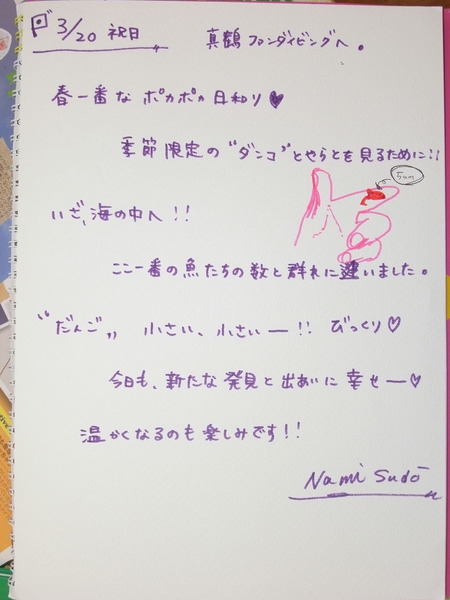 3/20 祝日 真鶴ファンダイビングへ。
春一番なポカポカ日和り♥
季節限定の"ダンゴ"とやらとを見るために!!
5mm
いざ、海の中へ!!
ここ一番の魚たちの数と群れに遭いました。
"だんご" 小さい、小さいー!! びっくり♡
今日も、新たな発見と出あいに幸せー♡
温かくなるのも楽しみです!!
Nami Sudō